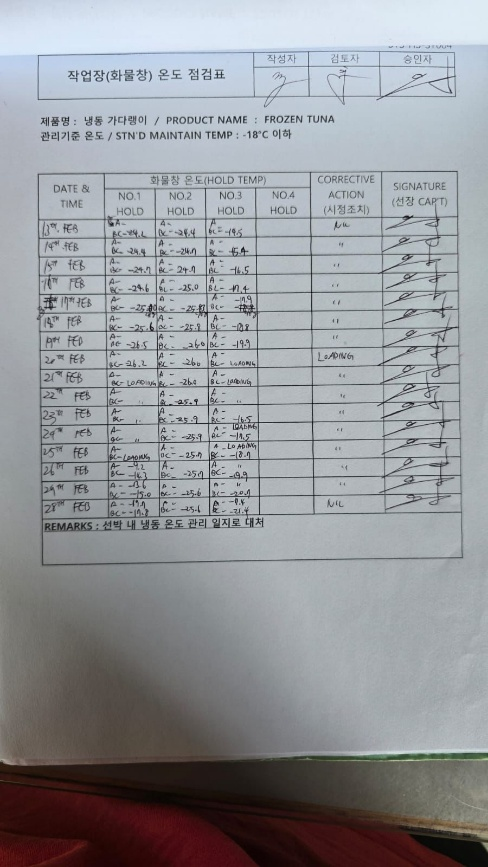 작성자 검토자 승인자
작업장(화물창) 온도 점검표
제품명 : 냉동 가다랭이 / PRODUCT NAME : FROZEN TUNA
관리기준 온도 / STN'D MAINTAIN TEMP : -18°C 이하
DATE & TIME 화물창 온도(HOLD TEMP) CORRECTIVE ACTION (시정조치) SIGNATURE (선장 CAP'T)
NO.1 HOLD NO.2 HOLD NO.3 HOLD NO.4 HOLD
13th FEB A- BC- -24.2 A- BC- -24.4 A BC- -19.5 NIL
14th FEB A- BC- -24.4 A- BC- -24.7 A- BC- "
15th FEB A- BC- -24.7 A- BC- -24.7 A- BC- -16.5 "
16th FEB A- BC- -24.6 A- BC- -25.0 A- BC- -17.4 "
17th FEB A- BC- A- BC- A- BC- "
18th FEB A- BC- -25.6 A- BC- -25.8 A- BC- "
19th FEB A- BC- -26.5 A- BC- -26.0 A- BC- -19.9 "
20th FEB A- BC- -26.2 A- BC- -26.0 A- BC- LOADING LOADING
21th FEB A- BC- LOADING A- BC- -26.0 A- BC- LOADING "
22th FEB A- BC- " A- BC- -25.9 A- BC- " "
23th FEB A- BC- " A- BC- -25.9 A- BC- -16.5 "
24th FEB A- BC- " A- BC- -25.9 A- LOADING BC- "
25th FEB A- BC- LOADING A- BC- -25.7 A- LOADING BC- -18.7 "
26th FEB A- BC- A- BC- -25.7 A- " BC- -19.9 "
FEB A- -13.6 BC- A- BC- -25.6 A- " BC- -20.7 "
28th FEB A- BC- A- BC- -25.6 A- BC- -21.4 NIL
REMARKS : 선박 내 냉동 온도 관리 일지로 대처